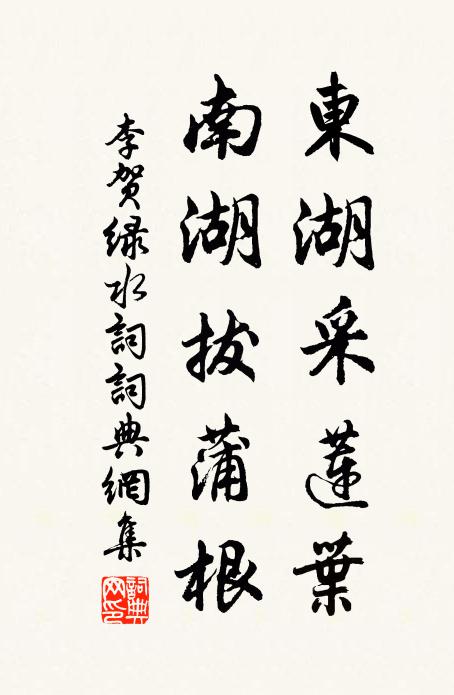 東湖采蓮葉
南湖拔蒲根
李賀綠水詞詞典網集
詞典网印